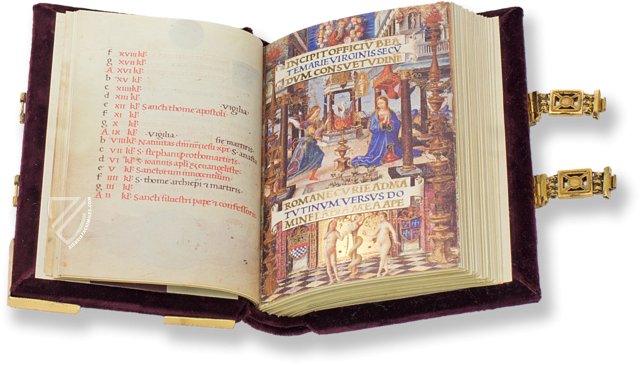 f XVIII kł.
g XVII kł.
A XVI kł.
b XV kł.
c
d XIII kł.
e XII kł. Sancti thome apostoli.
f XI kł.
g X kł.
A IX kł. Vigilia.
b VIII kł. Natiuitas
c VII kł. S. stephani prothomartiris.
d VI kł. S. Iouannis
e V kł. Sanctorum innocentium.
f IIII kł. S. thome archiepi & martiris.
g III kł.
A II kł. Sancti siluestri pape & confessoris.
INCIPIT OFFICIV BEA
TE MARIE VIRGINIS SECV
DVM CONSVETVDINE
ROMANE CVRIE AD MA
TVTINVM VERSVS DO
MINE LABIA MEA APE